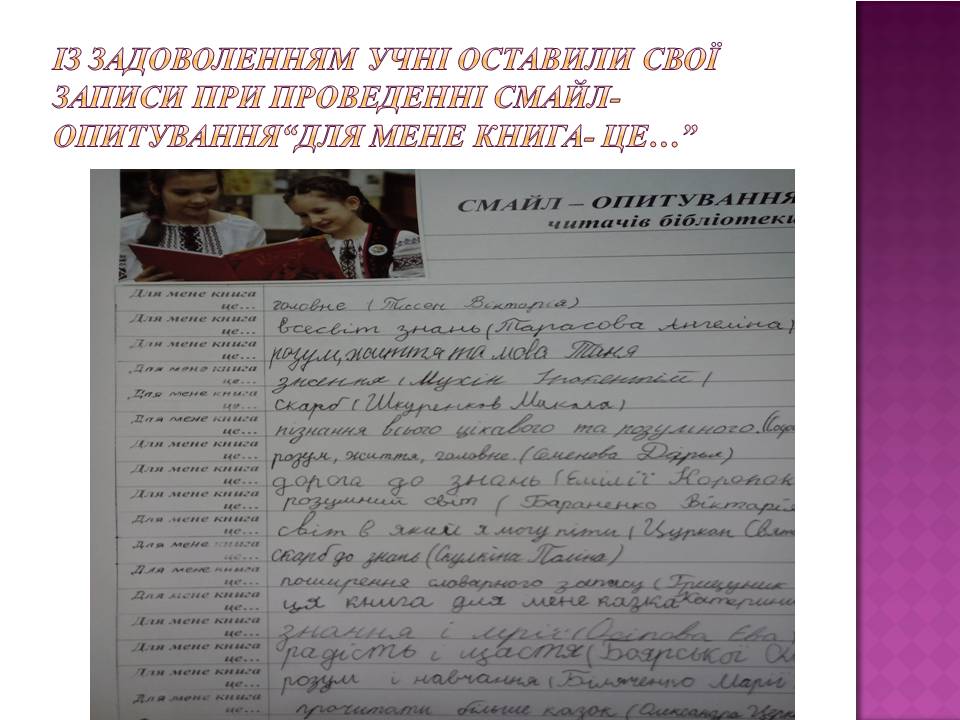 ІЗ ЗАДОВОЛЕННЯМ УЧНІ ОСТАВИЛИ СВОЇ
ЗАПИСИ ПРИ ПРОВЕДЕННІ СМАЙЛ-
ОПИТУВАННЯ“ДЛЯ МЕНЕ КНИГА- ЦЕ…”
СМАЙЛ – ОПИТУВАННЯ
читачів бібліотеки
Для мене книга
це... головне (Тіссен Вікторія)
Для мене книга
це... всесвіт знань (Тарасова Ангеліна)
Для мене книга
це... розум, життя та мова Таня
Для мене книга
це... знання (Мухін Інокентій)
Для мене книга
це... скарб (Шкуренков Микола)
Для мене книга
це... пізнання всього цікавого та розумного.
Для мене книга
це... розум, життя, головне. (Семенова Дар'я)
Для мене книга
це... дорога до знань (Емілії
Для мене книга
це... розумний світ (Бараненко Вікторія
Для мене книга
це... світ в який я могу піти (Цуркан Свят
Для мене книга
це... скарб до знань (Скулкіна Поліна)
Для мене книга
це... поширення словарного запасу (Грищуник
Для мене книга
це... ця книга для мене казка Катерини
Для мене книга
це... знання і мрії (Осіпова Єва)
Для мене книга
це... радість і щастя (Боярської
Для мене книга
це... розум і навчання (Біляченко Марії
Для мене книга
це... прочитати більше казок (Олександра